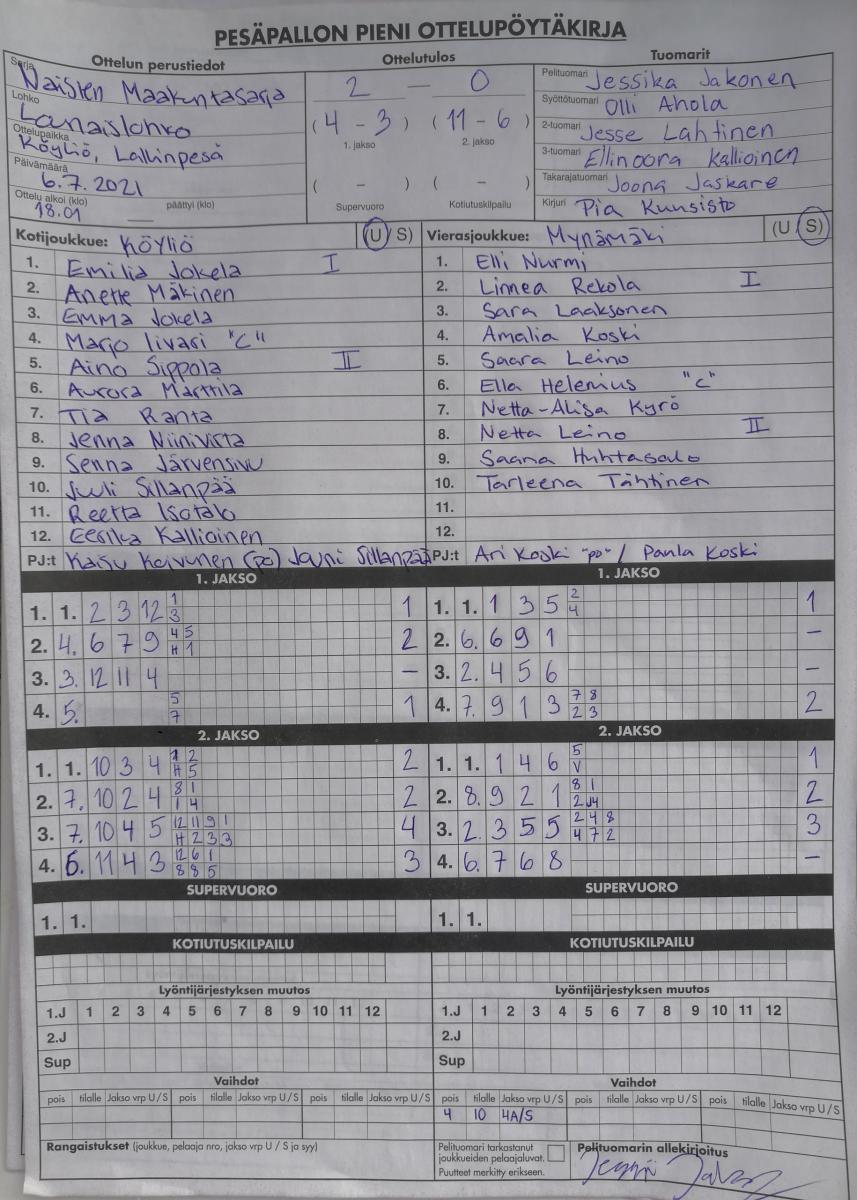 PESÄPALLON PIENI OTTELUPÖYTÄKIRJA
Ottelun perustiedot
Sarja Naisten Maakuntasarja
Lohko Lanaislohko
Ottelupaikka Köyliö, Lallinpesä
Päivämäärä 6.7.2021
Ottelu alkoi (klo) 18.01 päättyi (klo)
Ottelutulos
2 – 0
(4 – 3) (11 – 6)
1. jakso 2. jakso
( – ) ( – )
Supervuoro Kotiutuskilpailu
Tuomarit
Pelituomari Jessika Jakonen
Syöttötuomari Olli Ahola
2-tuomari Jesse Lahtinen
3-tuomari Ellinoora Kallioinen
Takarajatuomari Joona Jaskare
Kirjuri Pia Kuusisto
Kotijoukkue: Köyliö (U S)
1. Emilia Jokela I
2. Anette Mäkinen
3. Emma Jokela
4. Marjo Iivari "C"
5. Aino Sippola II
6. Aurora Marttila
7. Tia Ranta
8. Jenna Niinivirta
9. Senna Järvensivu
10. Juuli Sillanpää
11. Reetta Isotalo
12. Eerika Kallioinen
PJ:t Kaisu Koivunen (po) Jouni Sillanpää
Vierasjoukkue: Mynämäki (U S)
1. Elli Nurmi
2. Linnea Rekola I
3. Sara Laaksonen
4. Amalia Koski
5. Saara Leino
6. Ella Helenius "C"
7. Netta-Alisa Kyrö
8. Netta Leino II
9. Saana Huhtasalo
10. Tarleena Tähtinen
11.
12.
PJ:t Ari Koski "po" / Paula Koski
1. JAKSO
1. 1. 2 3 12 1 3 1
2. 4. 6 7 9 4 5 H 1 2
3. 3. 12 11 4 –
4. 5. 5 7 1
2. JAKSO
1. 1. 10 3 4 1 2 H 5 2
2. 7. 10 2 4 8 1 1 4 2
3. 7. 10 4 5 12 11 9 1 H 2 3 3 4
4. 6. 11 4 3 12 6 1 8 8 5 3
SUPERVUORO
1. 1.
KOTIUTUSKILPAILU
Lyöntijärjestyksen muutos
1.J 1 2 3 4 5 6 7 8 9 10 11 12
2.J
Sup
Vaihdot
pois tilalle Jakso vrp U/S pois tilalle Jakso vrp U/S pois tilalle Jakso vrp U/S
Rangaistukset (joukkue, pelaaja nro, jakso vrp U / S ja syy)
1. JAKSO
1. 1. 1 3 5 2 4 1
2. 6. 6 9 1 –
3. 2. 4 5 6 –
4. 7. 9 1 3 7 8 2 3 2
2. JAKSO
1. 1. 1 4 6 5 V 1
2. 8. 9 2 1 8 1 2 4 2
3. 2. 3 5 5 2 4 8 4 7 2 3
4. 6. 7 6 8 –
SUPERVUORO
1. 1.
KOTIUTUSKILPAILU
Lyöntijärjestyksen muutos
1.J 1 2 3 4 5 6 7 8 9 10 11 12
2.J
Sup
Vaihdot
pois tilalle Jakso vrp U/S pois tilalle Jakso vrp U/S pois tilalle Jakso vrp U/S
4 10 4A/S
Pelituomari tarkastanut
joukkueiden pelaajaluvat.
Puutteet merkitty erikseen.
Pelituomarin allekirjoitus